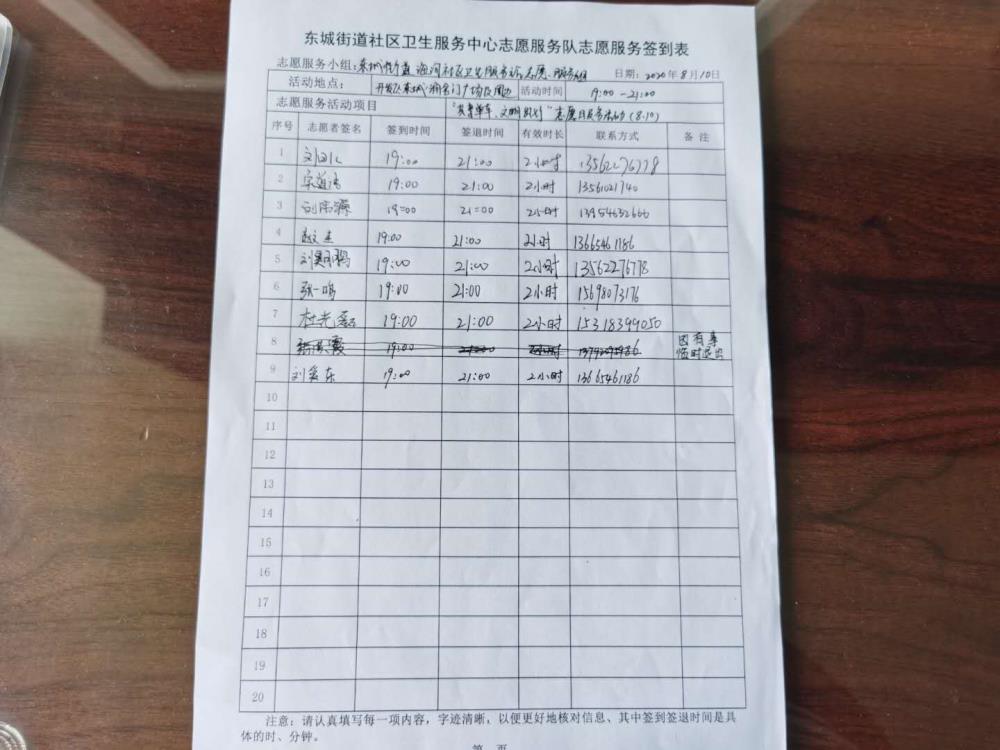 东城街道社区卫生服务中心志愿服务队志愿服务签到表
志愿服务小组：东城街道 社区卫生服务站志愿服务组 日期：2020年8月10日
活动地点： 广场及周边 活动时间 19:00-21:00
志愿服务活动项目 "共享单车、文明 " 志愿服务活动(8.10)
序号 志愿者签名 签到时间 签退时间 有效时长 联系方式 备注
1 19:00 21:00 2小时 13562276778
2 19:00 21:00 2小时 13561021740
3 19:00 21:00 2小时 13954632666
4 19:00 21:00 2小时 13665461186
5 19:00 21:00 2小时 13562276778
6 张一鸣 19:00 21:00 2小时 15698073176
7 杜光磊 19:00 21:00 2小时 15318399050
8 19:00 21:00 2小时 因有事
临时退出
9 刘爱东 19:00 21:00 2小时 13665461186
10
11
12
13
14
15
16
17
18
19
20
注意：请认真填写每一项内容，字迹清晰，以便更好地核对信息、其中签到签退时间是具
体的时、分钟。
第 页